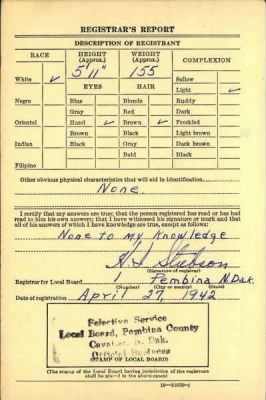 REGISTRAR'S REPORT
DESCRIPTION OF REGISTRANT
RACE HEIGHT (Approx.) WEIGHT (Approx.) COMPLEXION
5' 11" 155
White ✓ EYES HAIR Sallow
Light ✓
Negro Blue Blonde Ruddy
Gray Red Dark
Oriental Hazel ✓ Brown ✓ Freckled
Brown Black Light brown
Indian Black Gray Dark brown
Bald Black
Filipino
Other obvious physical characteristics that will aid in identification
None.
I certify that my answers are true; that the person registered has read or has had
to him his own answers; that I have witnessed his signature or mark and that
all of his answers of which I have knowledge are true, except as follows:
None to my Knowledge
(Signature of registrar)
Registrar for Local Board 1 Pembina N. Dak.
(Number) (City or county) (State)
Date of registration April 27, 1942
Selective Service
Local Board, Pembina County
Cavalier, N. Dak.
Official Business
STAMP OF LOCAL BOARD
(The stamp of the Local Board having jurisdiction of the registrant
shall be placed in the above space)